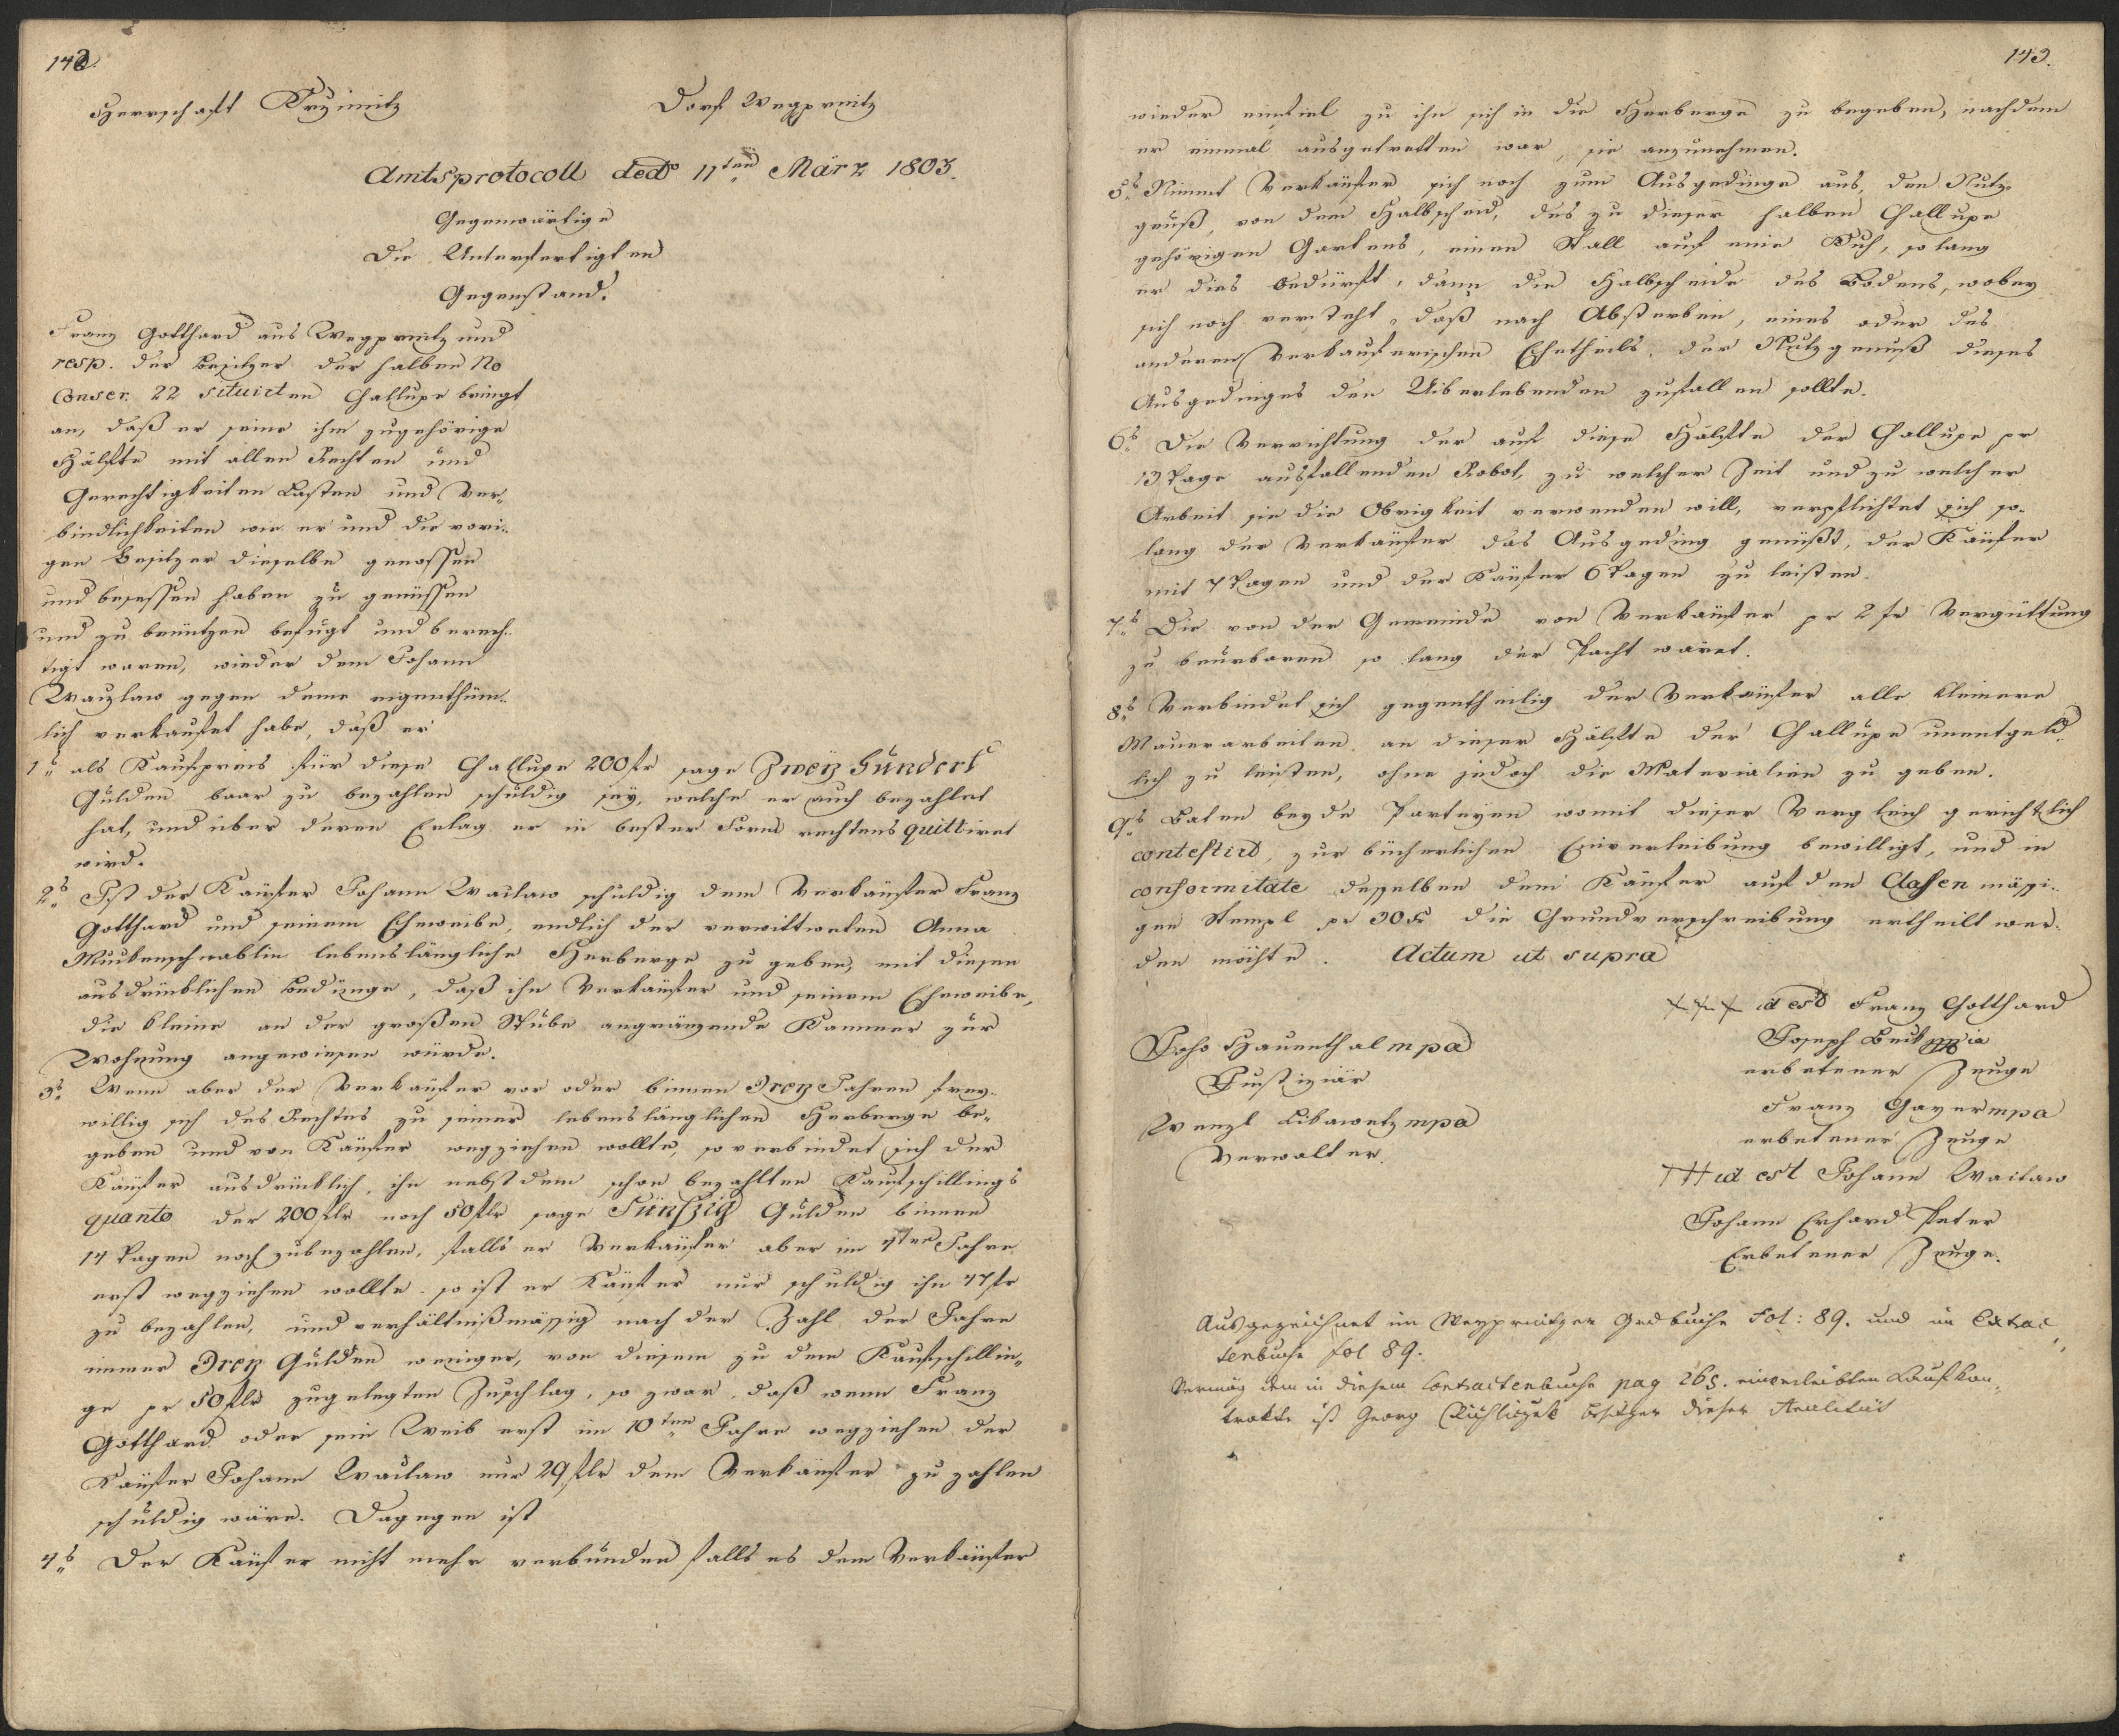 142.
Herrschaft Krzimitz Dorf Wegprnitz
Amtsprotocoll ded° 11ten März 1803.
Gegenwärtige
Die Unterfertigten
Gegenstand.
Franz Gotthard aus Wegprnitz und
resp. der Besitzer der halben No
Conscr. 22 situirten Challupe bringt
an, daß er seine ihm zugehörige
Hälfte mit allen Rechten und
Gerechtigkeiten Lasten und Ver„
bindlichkeiten wie er und die vori„
gen Besitzer dieselbe genossen
und besessen haben zu genüssen
und zu benützen befugt und berech„
tigt waren, wieder dem Johann
Watzlaw gegen deme eigenthüm„
lich verkaufet habe, daß er
1s als Kaufpreis für diese Challupe 200 fr sage Zwey Hundert
Gulden baar zu bezahlen schuldig sey, welche er auch bezahlet
hat, und über deren Erlag er in bester Form rechtens quittiret
wird.
2s Ist der Käufer Johann Waclaw schuldig dem Verkäufer Franz
Gotthard und seinem Eheweibe, endlich der verwittweten Anna
lebenslängliche Herberge zu geben, mit diesen
ausdrüklichen Bedünge, daß ihn Verkäufer und seinem Eheweibe,
die kleine an der großen Stube angränzende Kammer zur
Wohnung angewiesen würde.
3s Wenn aber der Verkäufer vor oder binnen Drey Jahren frey„
willig sich des Rechtes zu seiner lebenslänglichen Herberge be„
geben und von Käufer wegziehen wollte, so verbindet sich der
Käufer ausdrüklich, ihn nebst dem schon bezahlten Kaufschillings
quanto der 200 flr noch 50 flr sage Fünfzig Gulden binnen
14 Tagen noch zubezahlen, falls er Verkäufer aber im 4ten Jahre
erst wegziehen wollte. so ist er Käufer nur schuldig ihn 47 fr
zu bezahlen, und verhältnißmässig nach der Zahl der Jahre
immer Drey Gulden weniger, von diesem zu dem Kaufschillin„
ge pr 50 flr zugelegten Zuschlag, so zwar, daß wenn Franz
Gotthard oder sein Weib erst im 10ten Jahre wegziehen der
Käufer Johann Waclaw nur 29 flr dem Verkäufer zu zahlen
schuldig wäre. Dagegen ist
4s Der Käufer nicht mehr verbunden falls es dem Verkäufer
143.
wieder einfiel zu ihn sich in die Herberge zu begeben, nachdem
er einmal ausgetretten war, sie anzunehmen.
5s Nimmt Verkäufer sich noch zum Ausgedinge aus, den Nutz„
genuß, von dem Halbscheid, des zu dieser halben Challupe
gehörigen Gartens, einen Stall auf eine Kuh, so lang
er dies bedürft, dann die Halbscheide des Bodens, wobey
sich noch versteht, daß nach Absterben, eines oder des
anderen verkauferischen Ehetheils, der Nutzgenuß dieses
Ausgedinges den Uiberlebenden zufallen sollte.
6s Die Verrichtung der auf diese Hälfte der Challupe pr
13 Tage ausfallenden Robot, zu welcher Zeit und zu welcher
Arbeit sie die Obrigkeit verwenden will, verpflichtet sich so„
lang der Verkäufer das Ausgeding genüßt, der Käufer
mit 7 Tagen und der Käufer 6 Tagen zu leisten.
7s Die von der Gemeinde von Verkäufer pr 2 fr Vergüttung
zu beurbaren so lang der Pacht wäret.
8s Verbindet sich gegentheilig der Verkäufer alle kleinere
Mauerarbeiten, an dieser Hälfte der Challupe unentgeld„
lich zu leisten, ohne jedoch die Materialien zu geben.
9s Baten beyde Partheyen womit dieser Vergleich gerichtlich
contestird, zur bücherlichen Einverleibung bewilligt, und in
conformitate desselben dem Käufer auf den Classenmäsi„
gen Stempl pr 30 Kr die Grundverschreibung ertheilt wer„
den möchte. Actum ut supra
+++ id est Franz Gotthard
Joseph
erbetener Zeuge
Franz Gayer mpa
erbetener Zeuge
+++ id est Johann Waclaw
Johann Erhard Peter
Erbetener Zeuge.
Joh. Hauenthal mpa
Justiziär
Wenzl Libawetz mpa
Verwalter.
Ausgezeichnet im Weyprnitzer Grdbuche Fol: 89. und im Extrac„
tenbuche fol 89.
Vermög dem in diesem Contractenbuche pag 265. einverleibten Kaufkon„
trakte ist Georg besitzer dieser Realität